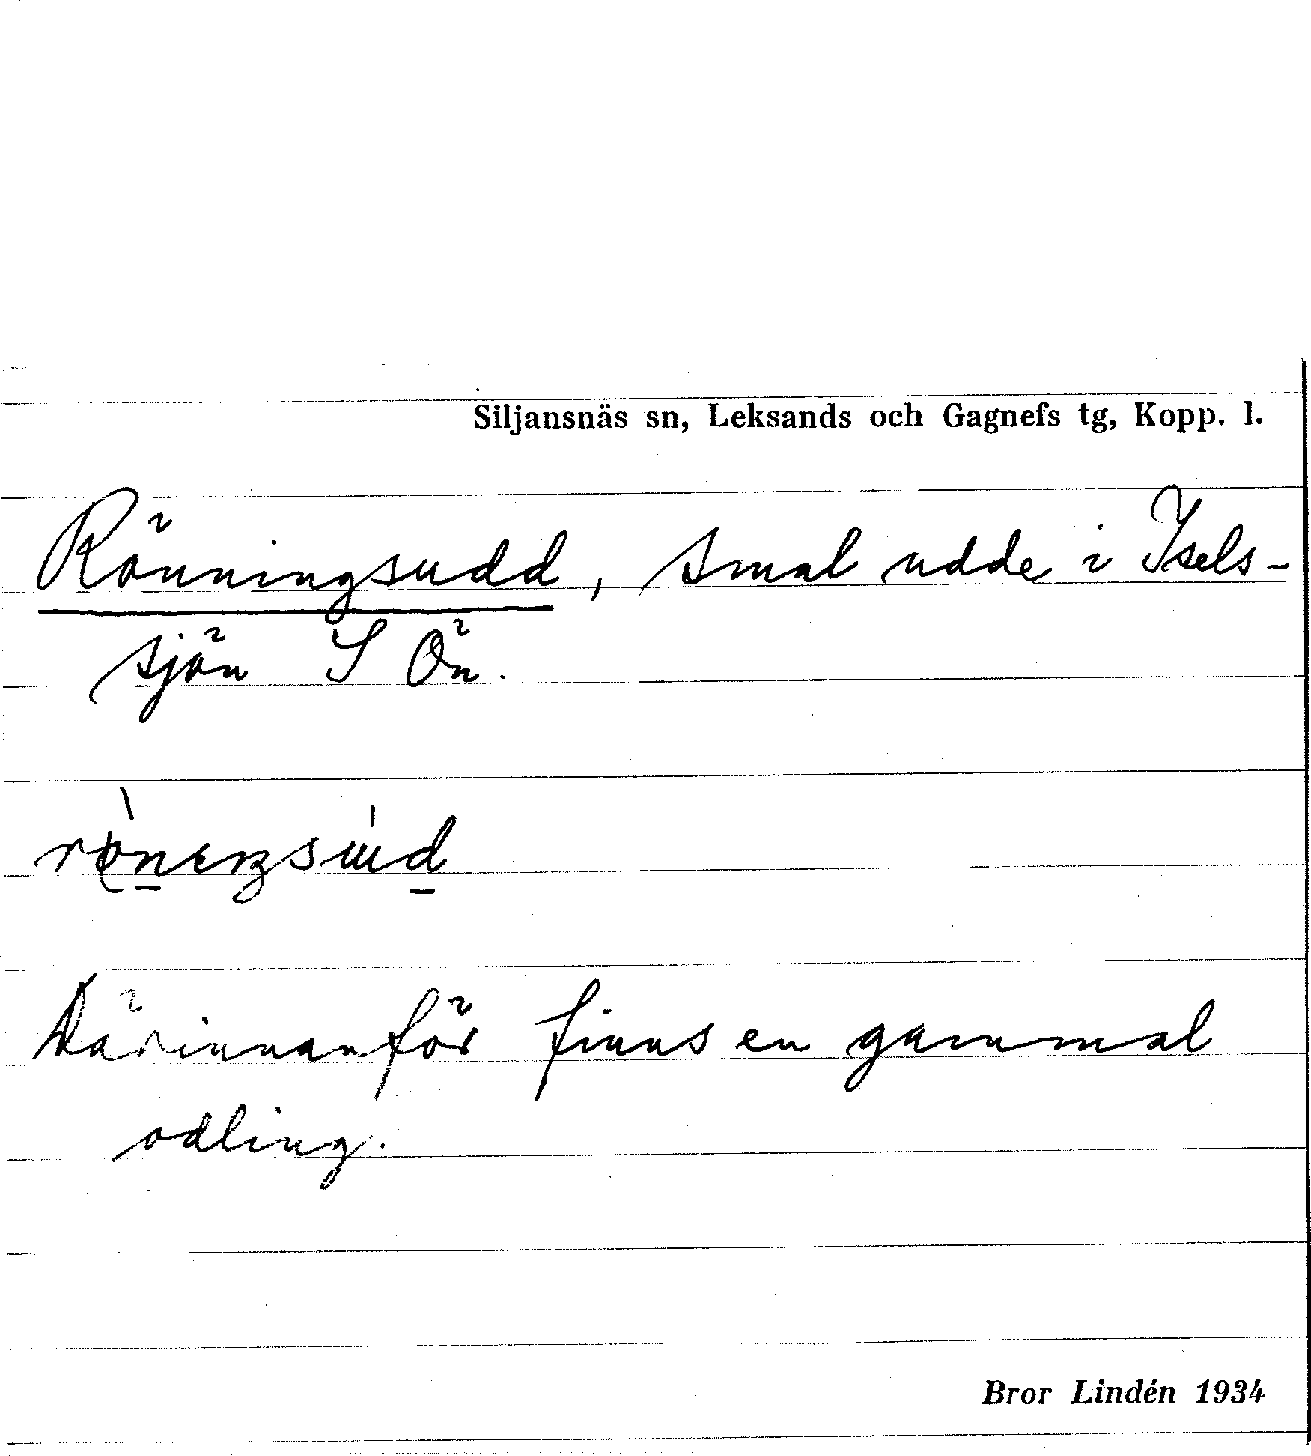 Siljansnäs sn, Leksands och Gagnefs tg, Kopp. l.
Rönningsudd, smal udde i Isels-
sjön S Ön.
Därinnanför finns en gammal
odling.
Bror Lindén 1934